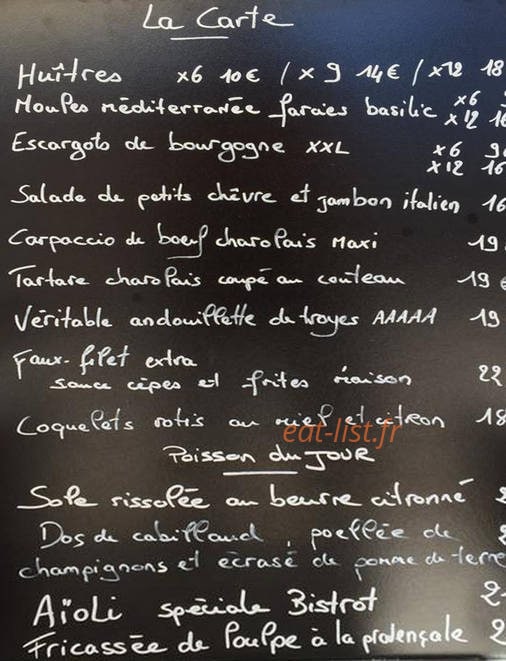 La Carte
Huîtres x6 10€ / x 9 14€ / x12 18
Moules méditerranée farcies basilic x6
x12 16
Escargots de bourgogne XXL x6 9
x12 16
Salade de petits chèvre et jambon italien 16
Carpaccio de boeuf charolais Maxi 19
Tartare charolais coupé au couteau 19 €
Véritable andouillette de troyes AAAAA 19
Faux-filet extra
sauce cèpes et frites maison 22
Coquelets rotis au miel et citron 18
eat-list.fr
Poisson du JOUR
Sole rissolée au beurre citronné
Dos de cabillaud, poellée de
champignons et écrasé de pomme de terre
Aïoli spéciale Bistrot 2
Fricassée de Poulpe à la provençale 2